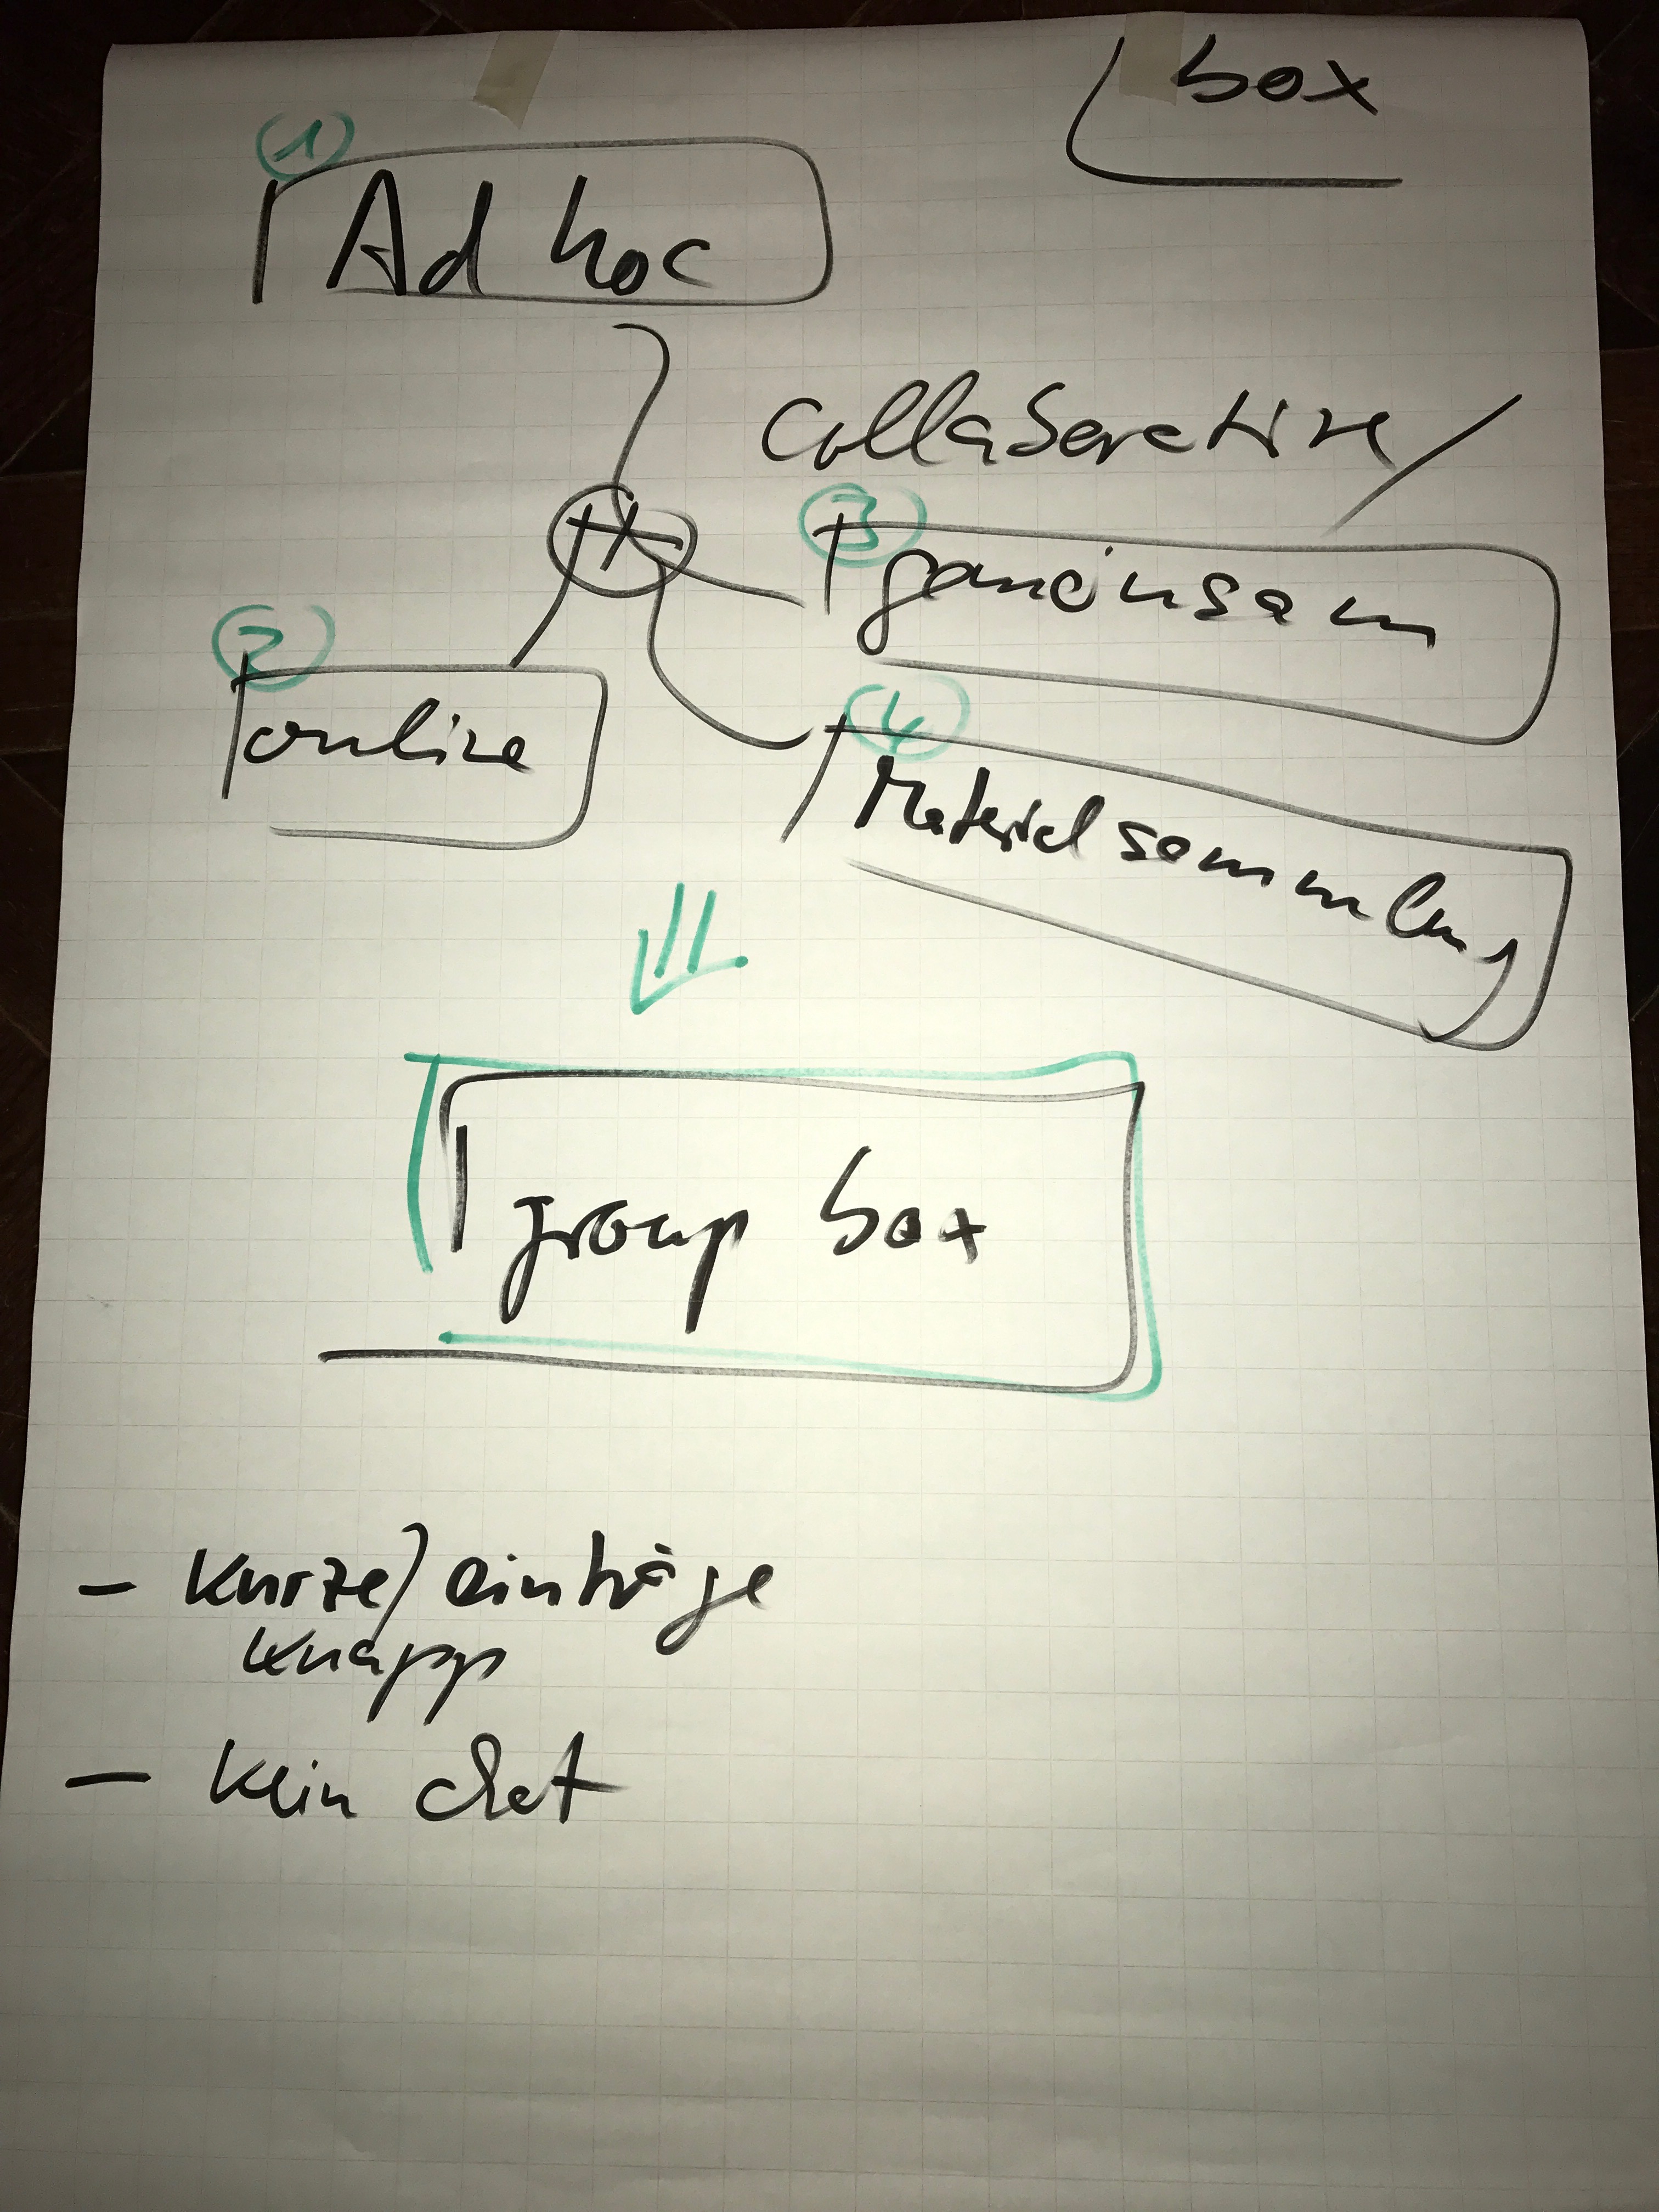 box
1
Ad hoc
collaborative/
3
gemeinsam
2
online
4
Materialsammlung
group box
– kurze/einträge
knapp
– kein chat